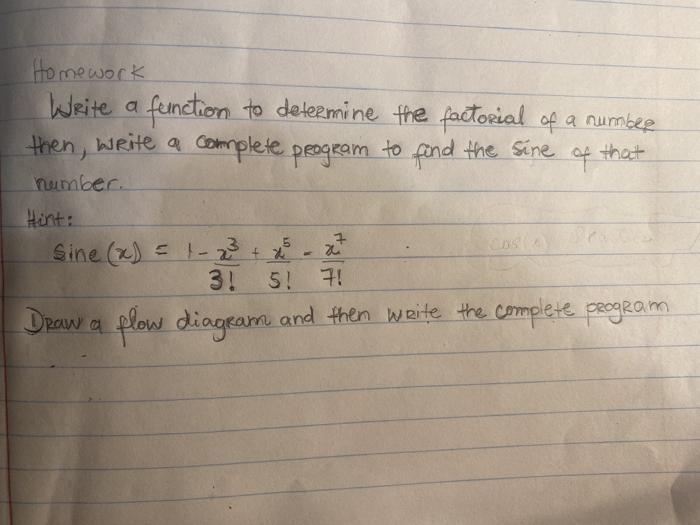 Homework
Write a function to determine the factorial of a number
then, write a complete program to find the sine of that
number.
Hint:
Sine (x) = 1 - x³/3! + x⁵/5! - x⁷/7!
Draw a flow diagram and then write the complete program